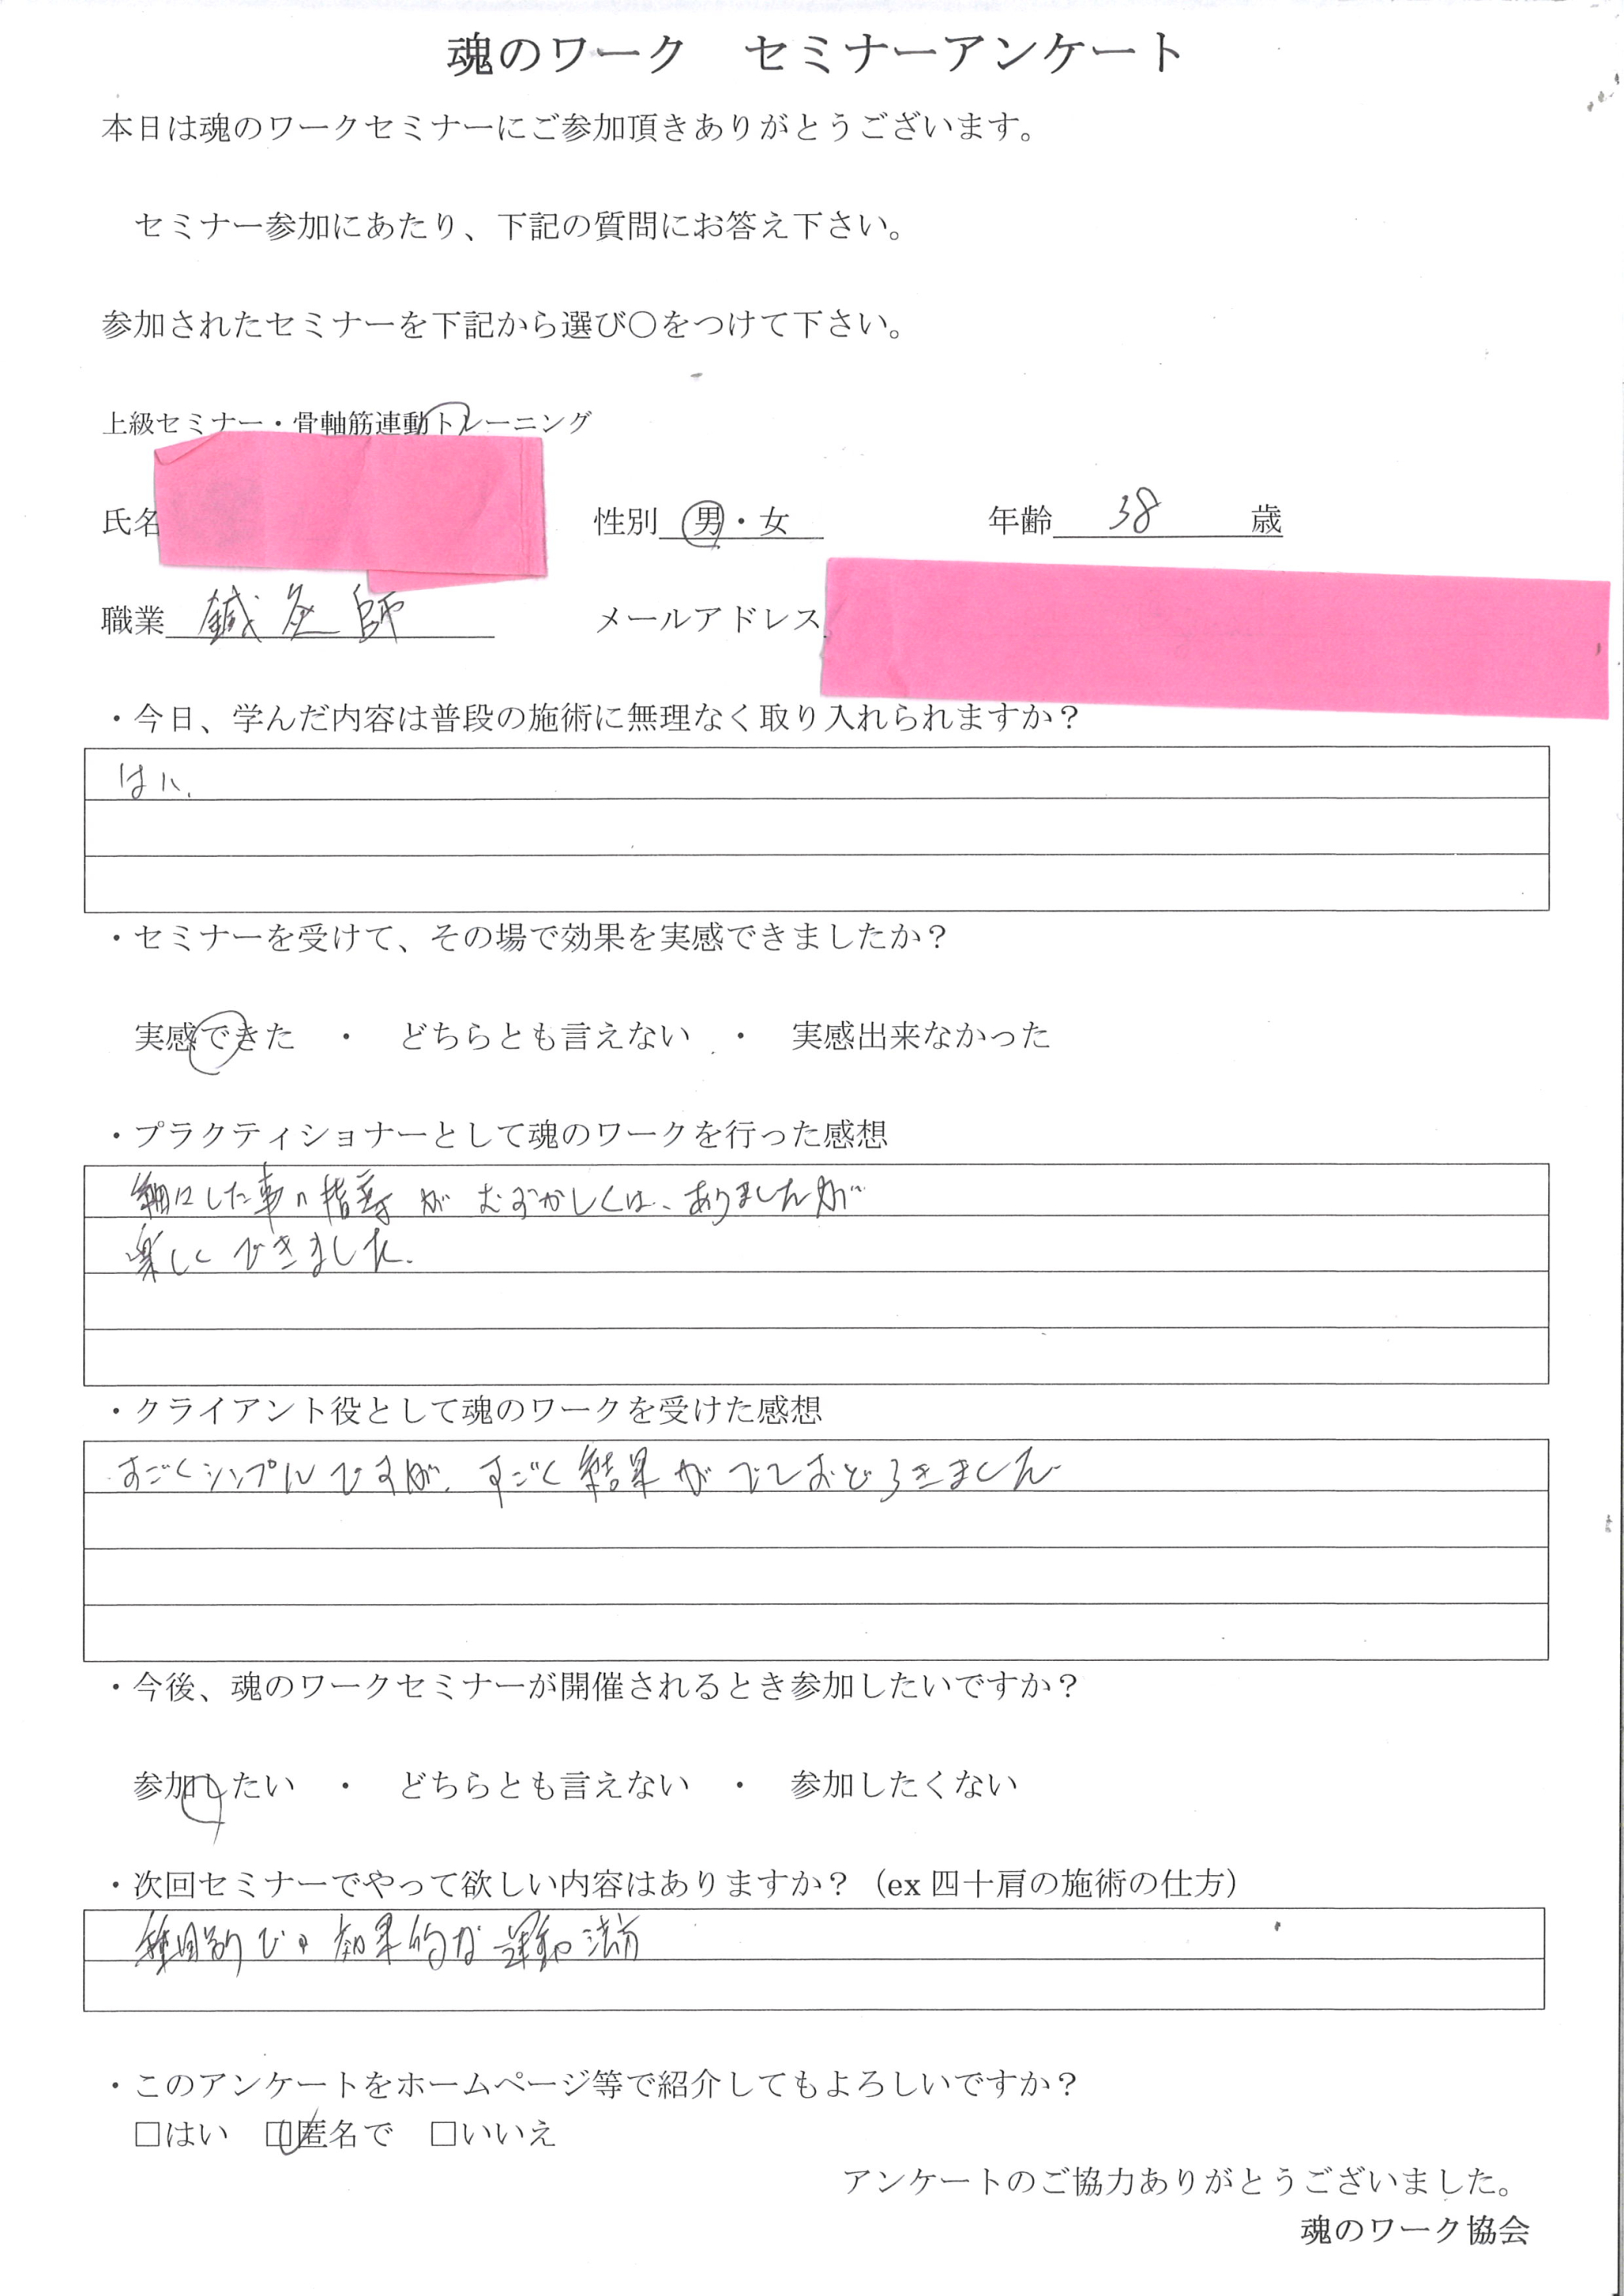 魂のワーク　セミナーアンケート
本日は魂のワークセミナーにご参加頂きありがとうございます。
セミナー参加にあたり、下記の質問にお答え下さい。
参加されたセミナーを下記から選び〇をつけて下さい。
上級セミナー・骨軸筋連動トレーニング
氏名　性別　男・女　年齢　38　歳
職業　鍼灸師　メールアドレス
・今日、学んだ内容は普段の施術に無理なく取り入れられますか？
はい、
・セミナーを受けて、その場で効果を実感できましたか？
実感できた　・　どちらとも言えない　・　実感出来なかった
・プラクティショナーとして魂のワークを行った感想
した事の指導がむずかしくは、ありましたが
楽しくできました。
・クライアント役として魂のワークを受けた感想
すごくシンプルですが、すごく結果がでておどろきました
・今後、魂のワークセミナーが開催されるとき参加したいですか？
参加したい　・　どちらとも言えない　・　参加したくない
・次回セミナーでやって欲しい内容はありますか？（ex 四十肩の施術の仕方）
種目別での効果的な運動法
・このアンケートをホームページ等で紹介してもよろしいですか？
□はい　☑匿名で　□いいえ
アンケートのご協力ありがとうございました。
魂のワーク協会